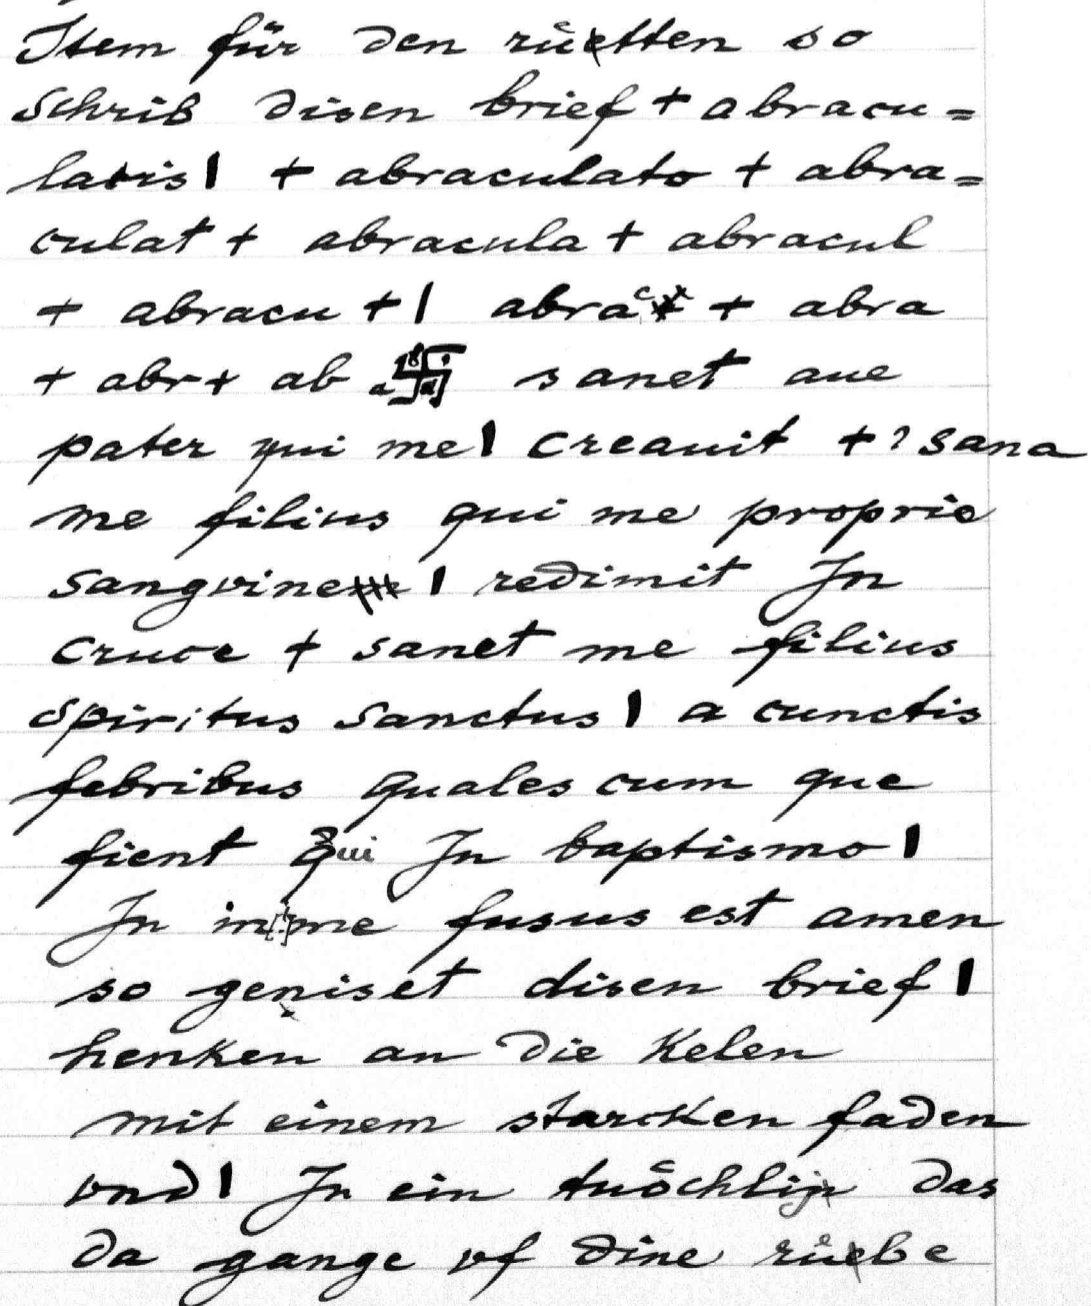 Item für den růetten so
schrib disen brief + abracu=
latis| + abraculato + abra=
culat + abracula + abracul
+ abracu +| abrac + abra
+ abr + ab sanet aue
pater qui me| creauit +? sana
me filius qui me proprie
sangvine | redimit Jn
cruce + sanet me filius
spiritus sanctus| a cunctis
febribus quales cum que
fient qui Jn baptismo|
Jn in me fusus est amen
so geniset disen brief|
henken an die Kelen
mit einem starcken faden
vnd| Jn ein das
da gange vf dine